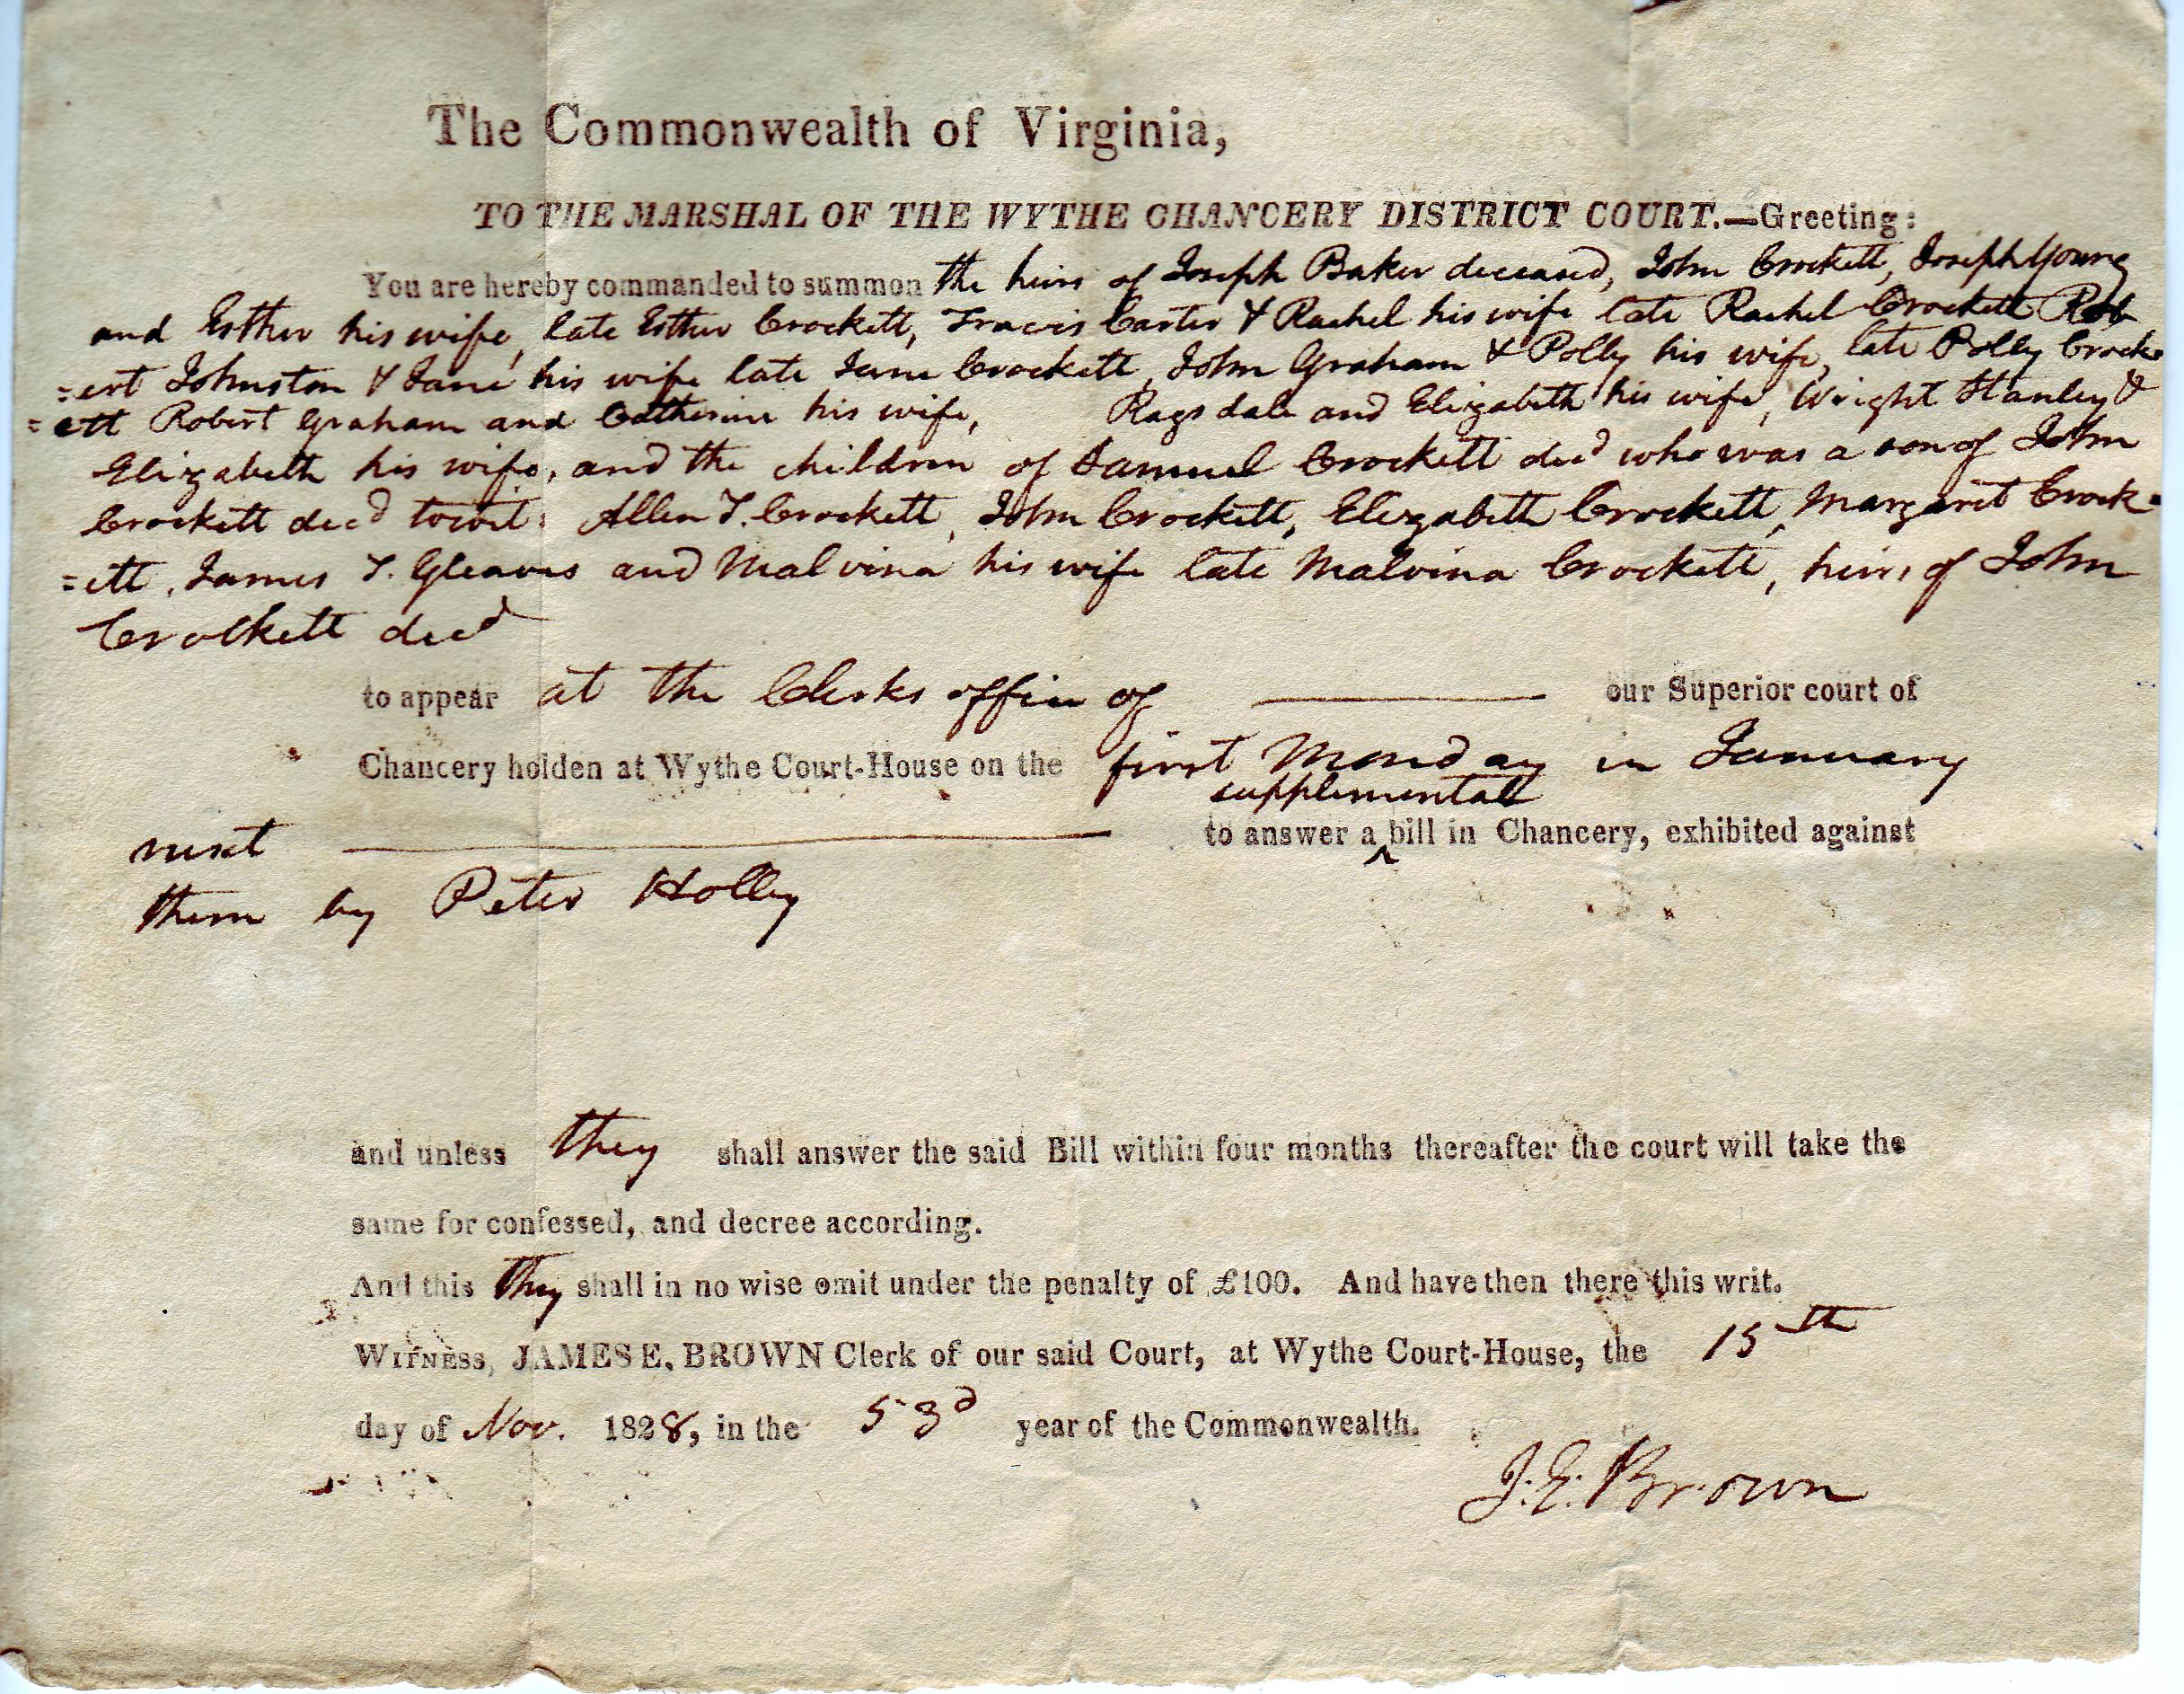 The Commonwealth of Virginia,
TO THE MARSHAL OF THE WYTHE CHANCERY DISTRICT COURT.—Greeting:
You are hereby commanded to summon the heirs of Joseph Baker deceased, John Crockett, Joseph Young
and Esther his wife, late Esther Crockett, Travis Carter & Rachel his wife late Rachel Crockett Rob
=ert Johnston & Jane his wife late Jane Crockett, John Graham & Polly his wife, late Polly Crock=
=ett Robert Graham and Catherine his wife, Ragsdale and Elizabeth his wife, Wright Stanley &
Elizabeth his wife, and the children of Samuel Crockett decd who was a son of John
Crockett decd towit: Allen T. Crockett, John Crockett, Elizabeth Crockett, Margaret Crock=
=ett, James T. Gleaves and Malvina his wife late Malvina Crockett, heirs of John
Crockett decd
to appear at the Clerks office of our Superior court of
Chancery holden at Wythe Court-House on the first Monday in January
supplemental
next to answer a ^ bill in Chancery, exhibited against
them by Peter Holly
and unless they shall answer the said Bill within four months thereafter the court will take the
same for confessed, and decree according.
And this they shall in no wise omit under the penalty of £100. And have then there this writ.
WITNESS, JAMES E. BROWN Clerk of our said Court, at Wythe Court-House, the 15th
day of Nov. 1828, in the 53d year of the Commonwealth.
J. E. Brown